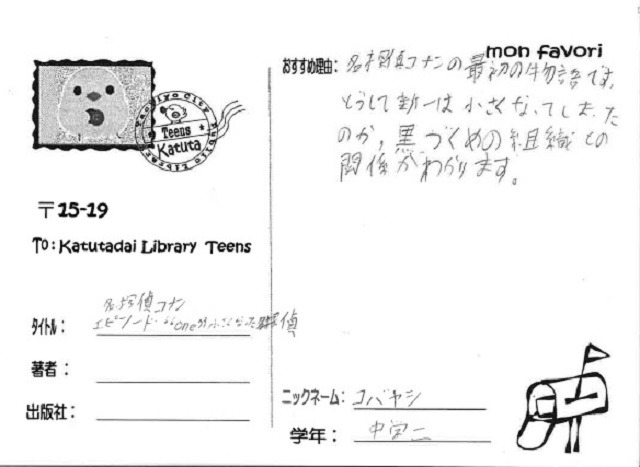 mon favori
おすすめ理由: 名探偵コナンの最初の物語です。
どうして新一は小さくなってしまった
のか, 黒づくめの組織との
関係がわかります。
Yachiyo City
Teens
Katuta
Public Library
〒15-19
To: Katutadai Library Teens
名探偵コナン
タイトル: エピソード "one" 小さくなった名探偵
著者:
出版社:
ニックネーム: コバヤシ
学年: 中学二